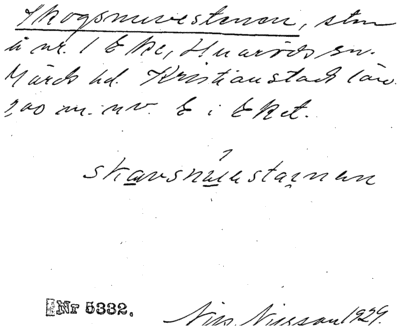 Skogsmuestenen, sten
å nr. 1 Eke, Huaröds sn.
Gärds hd. Kristianstads län.
200 m. nv. E i Eket.
skavsnúestainan
Nr 5332.
Nils Nilsson 1929.